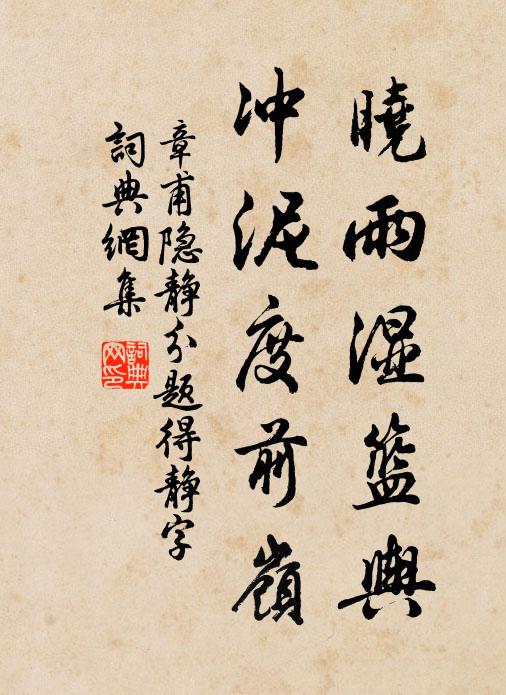 曉雨湿籃輿
冲泥度前嶺
章甫隐静分题得静字
詞典網集
詞典網印